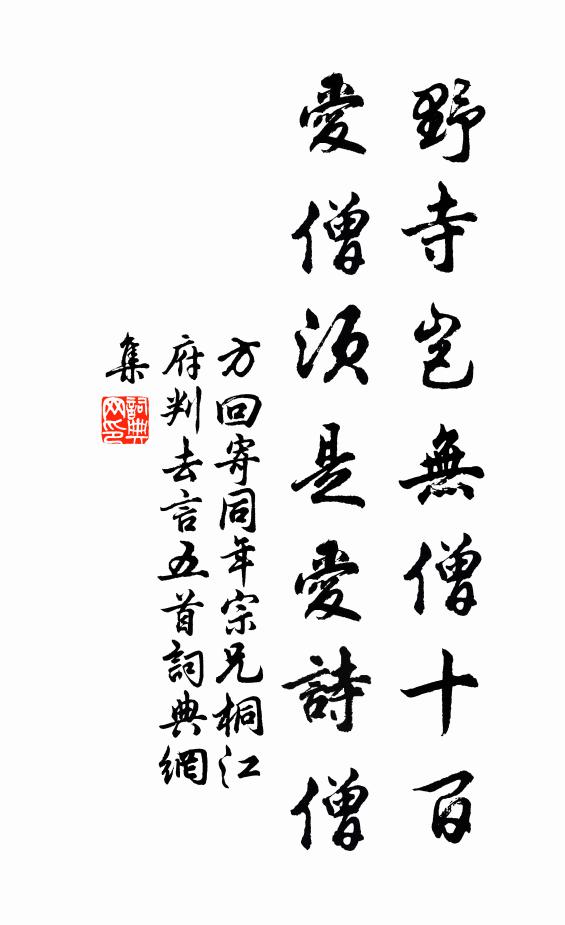 野寺豈無僧十百
愛僧須是愛詩僧
方回寄同年宗兄桐江
府判去言五首詞典網
集
詞典
网印